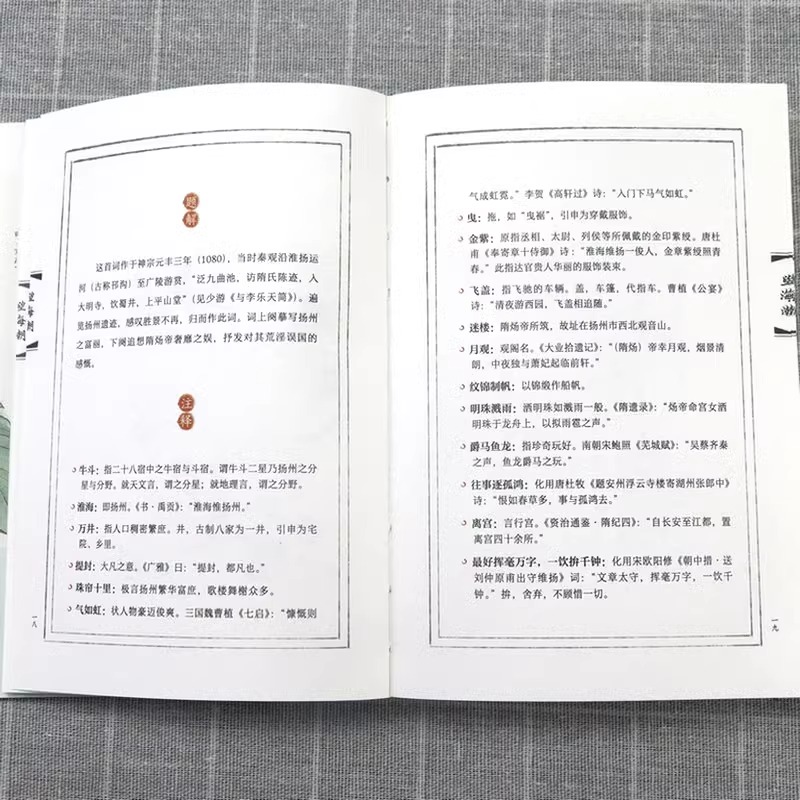 题解
这首词作于神宗元丰三年（1080），当时秦观沿淮扬运
河（古称邗沟）至广陵游赏，“泛九曲池，访隋氏陈迹，入
大明寺，饮蜀井，上平山堂”（见少游《与李乐天简》）。遍
览扬州遗迹，感叹胜景不再，归而作此词。词上阕摹写扬州
之富丽，下阕追想隋炀帝奢靡之娱，抒发对其荒淫误国的
感慨。
注释
牛斗：指二十八宿中之牛宿与斗宿。谓牛斗二星乃扬州之分
星与分野。就天文言，谓之分星；就地理言，谓之分野。
淮海：即扬州。《书·禹贡》：“淮海惟扬州。”
万井：指人口稠密繁庶。井，古制八家为一井，引申为宅
院、乡里。
提封：大凡之意。《广雅》曰：“提封，都凡也。”
珠帘十里：极言扬州繁华富庶，歌楼舞榭众多。
气如虹：状人物豪迈俊爽。三国魏曹植《七启》：“慷慨则
一八
望海潮
望海潮
气成虹霓。”李贺《高轩过》诗：“入门下马气如虹。”
曳：拖，如“曳裾”，引申为穿戴服饰。
金紫：原指丞相、太尉、列侯等所佩戴的金印紫绶。唐杜
甫《奉寄章十侍御》诗：“淮海维扬一俊人，金章紫绶照青
春。”此指达官贵人华丽的服饰装束。
飞盖：指飞驰的车辆。盖，车篷，代指车。曹植《公宴》
诗：“清夜游西园，飞盖相追随。”
迷楼：隋炀帝所筑，故址在扬州市西北观音山。
月观：观阁名。《大业拾遗记》：“（隋炀）帝幸月观，烟景清
朗，中夜独与萧妃起临前轩。”
纹锦制帆：以锦缎作船帆。
明珠溅雨：洒明珠如溅雨一般。《隋遗录》：“炀帝命宫女洒
明珠于龙舟上，以拟雨雹之声。”
爵马鱼龙：指珍奇玩好。南朝宋鲍照《芜城赋》：“吴蔡齐秦
之声，鱼龙爵马之玩。”
往事逐孤鸿：化用唐杜牧《题安州浮云寺楼寄湖州张郎中》
诗：“恨如春草多，事与孤鸿去。”
离宫：言行宫。《资治通鉴·隋纪四》：“自长安至江都，置
离宫四十余所。”
最好挥毫万字，一饮拚千钟：化用宋欧阳修《朝中措·送
刘仲原甫出守维扬》词：“文章太守，挥毫万字，一饮千
钟。”拚，舍弃，不顾惜一切。
一九
望海潮